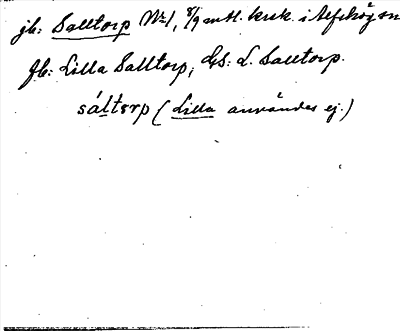 jb: Salltorp Nr 1, 8/9 mtl. krk. i Alfshög sn
Jb: Lilla Salltorp, GS: L. Salltorp.
sáltɔrp (Lilla användes ej.)